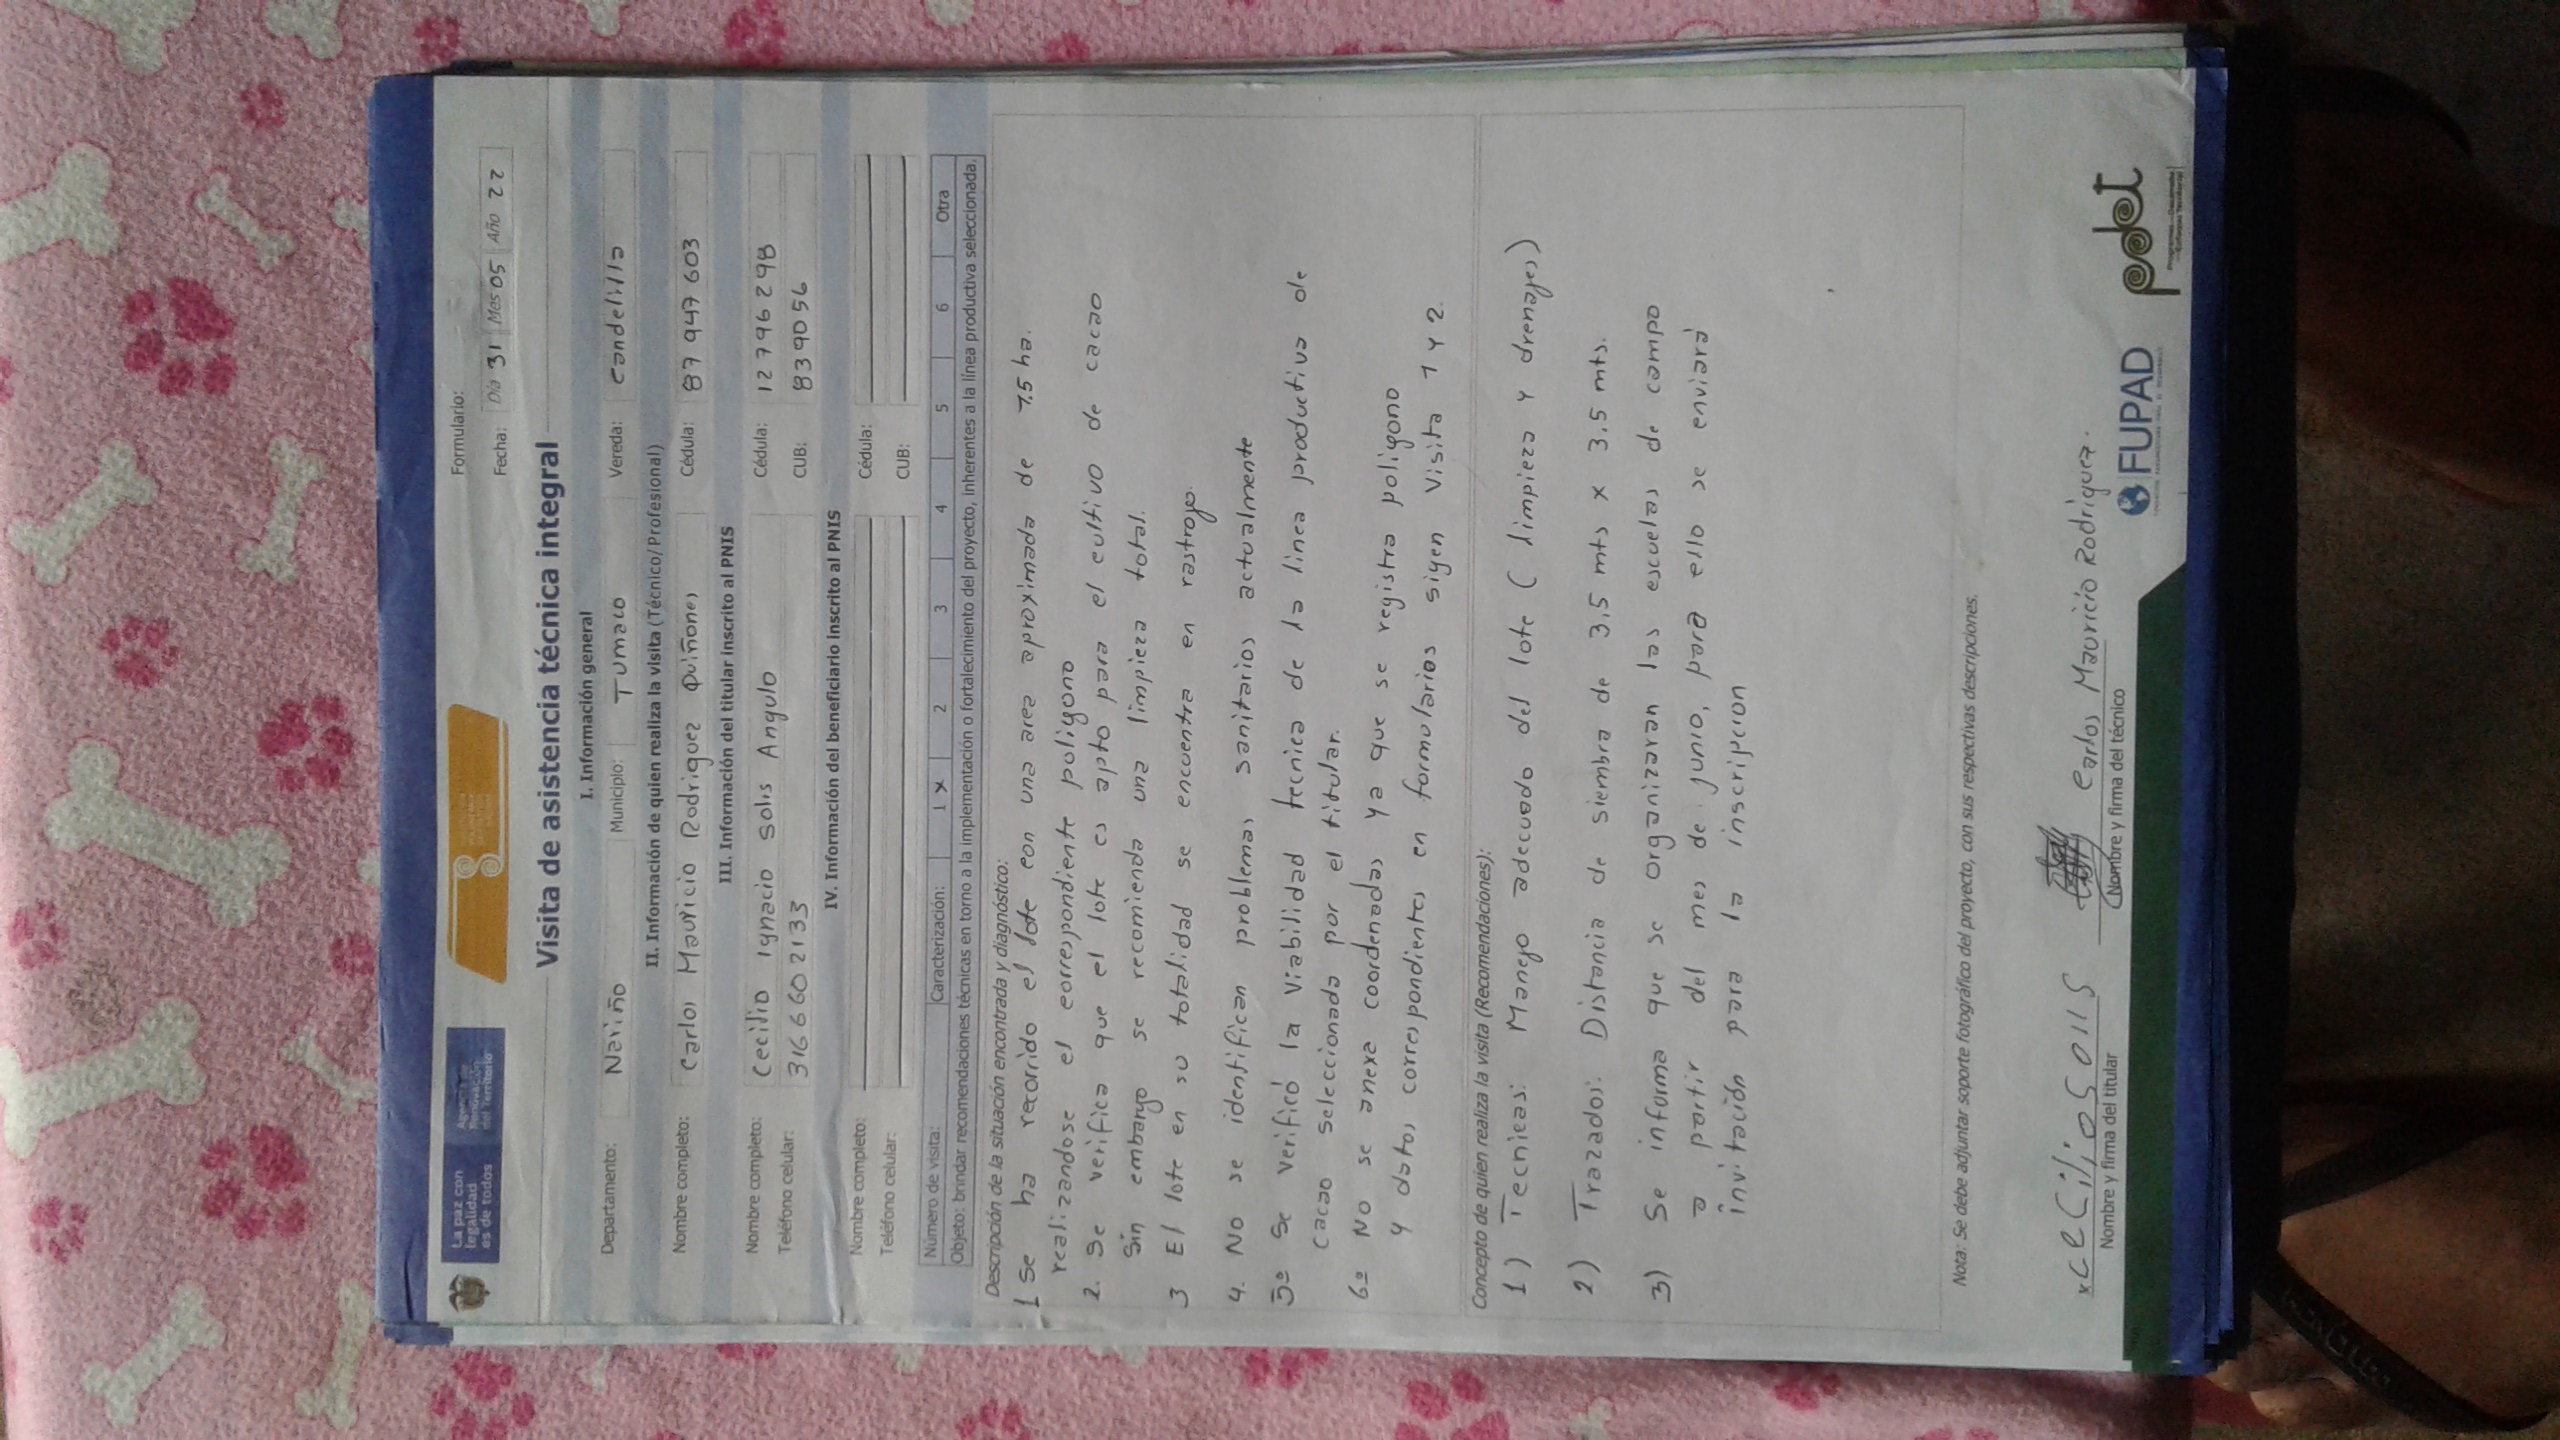 La paz con
legalidad
es de todos
Agencia de
Renovación
del Territorio
Formulario:
Fecha: Día 31 Mes 05 Año 22
Visita de asistencia técnica integral
I. Información general
Departamento: Nariño Municipio: Tumaco Vereda: candelilla
II. Información de quien realiza la visita (Técnico/Profesional)
Nombre completo: Carlos Mauricio Rodriguez Quiñones Cédula: 87947603
III. Información del titular inscrito al PNIS
Nombre completo: Cecilio Ignacio Solis Angulo Cédula: 12796298
Teléfono celular: 3166602133 CUB: 839056
IV. Información del beneficiario inscrito al PNIS
Nombre completo: Cédula:
Teléfono celular: CUB:
Número de visita: Caracterización: 1 x 2 3 4 5 6 Otra
Objeto: brindar recomendaciones técnicas en torno a la implementación o fortalecimiento del proyecto, inherentes a la línea productiva seleccionada.
Descripción de la situación encontrada y diagnóstico:
1 Se ha recorrido el lote con una area aproximada de 7.5 ha.
realizandose el correspondiente poligono
2. Se verifica que el lote es apto para el cultivo de cacao
Sin embargo se recomienda una limpieza total.
3 El lote en su totalidad se encuentra en rastrojo.
4. No se identifican problemas sanitarios actualmente
5º Se verificó la viabilidad tecnica de la linea productiva de
cacao seleccionada por el titular.
6º No se anexa coordenadas ya que se registra poligono
y datos correspondientes en formularios sigen visita 1 y 2.
Concepto de quien realiza la visita (Recomendaciones):
1) Tecnicas: Manejo adecuado del lote ( limpieza y drenajes)
2) Trazados: Distancia de siembra de 3,5 mts x 3.5 mts.
3) Se informa que se organizaran las escuelas de campo
a partir del mes de junio, para ello se enviará
invitación para la inscripcion
Nota: Se debe adjuntar soporte fotográfico del proyecto, con sus respectivas descripciones.
x ceCilio SOlIS
Nombre y firma del titular
Carlos Mauricio Rodriguez.
Nombre y firma del técnico
FUPAD
pdet